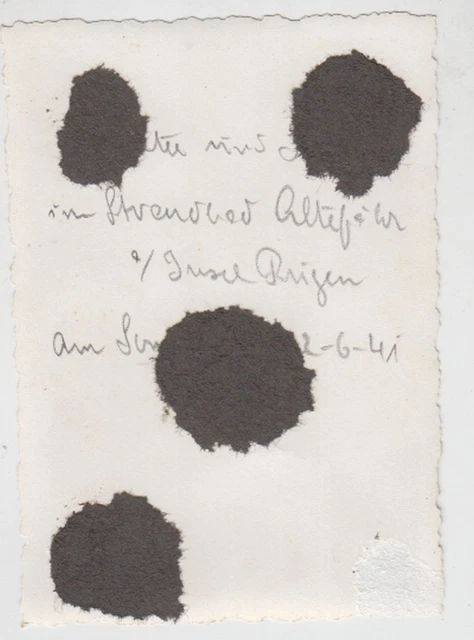 und
im Strandbad Altefähr
a/ Insel Rügen
am 2-6-41